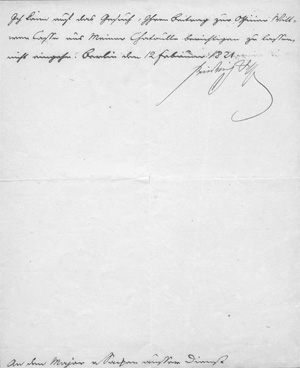 Ich kann auf das Gesuch: Ihren Beitrag zur Offizier Witt-
wen Casse aus Meiner Chatoulle berichtigen zu lassen,
nicht eingehn. Berlin den 12 Februar 1821
Friedrich W
An den Major v außer Dienst